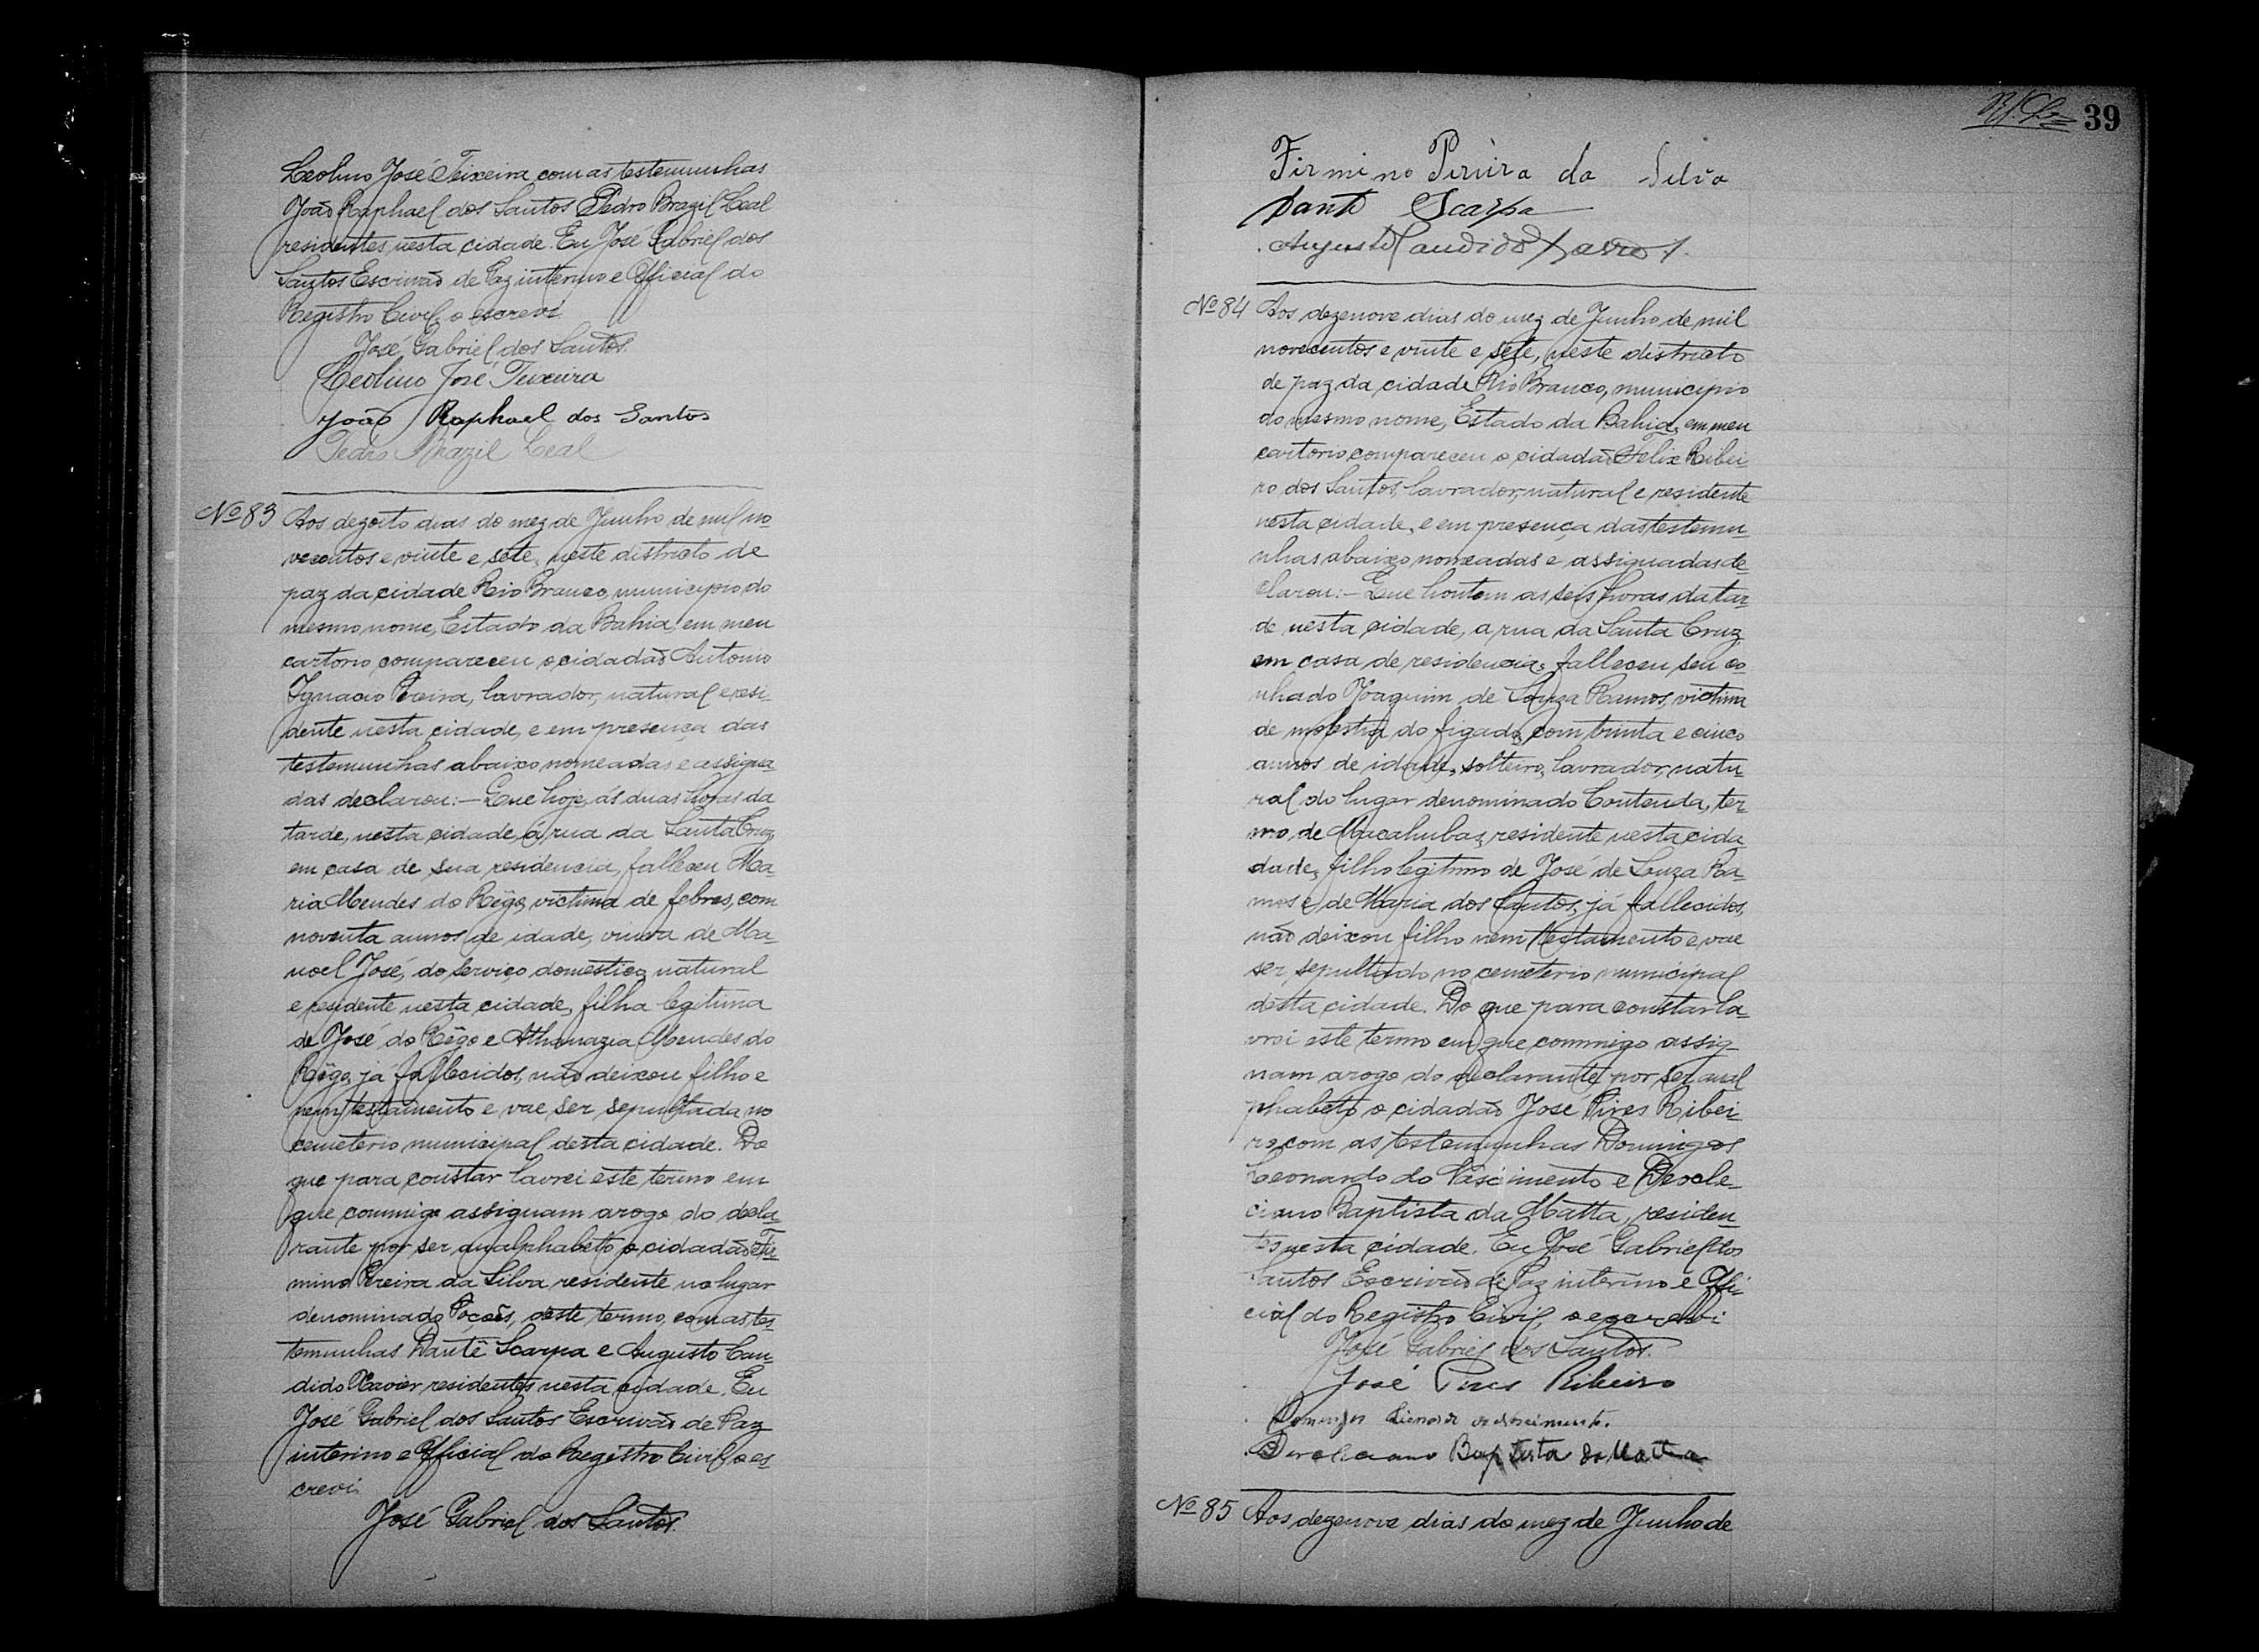 Leolino José Teixeira com as testemunhas
João Raphael dos Santos Pedro Brazil Leal
residentes nesta cidade. Eu José Gabriel dos
Santos Escrivão de Paz interino e Official do
Registro Civil, o escrevi
José Gabriel dos Santos.
Leolino José Teixeira
João Raphael dos Santos
Pedro Brazil Leal
Nº 83 Aos dezoito dias do mez de Junho de mil no-
vecentos e vinte e sete, neste districto de
paz da cidade Rio Branco, municipio do
mesmo nome, Estado da Bahia, em meu
cartorio compareceu o cidadão Antonio
Ignacio Pereira, lavrador, natural e resi-
dente nesta cidade, e em presença das
testemunhas abaixo nomeadas e assigna-
das declarou:- Que hoje, ás duas horas da
tarde, nesta cidade, á rua da Santa Cruz,
em casa de sua residencia, falleceu Ma-
ria Mendes do Rêgo, victima de febres, com
noventa annos de idade, viuva de Ma-
noel José, do serviço domestico, natural
e residente nesta cidade, filha legitima
de José do Rêgo e Athanazia Mendes do
Rêgo, já fallecidos, não deixou filho e
nem testamento e vae ser sepultada no
cemeterio municipal desta cidade. Do
que para constar lavrei este termo em
que commigo assignam arogo do decla-
rante por ser analphabeto o cidadão Fir-
mino Pereira da Silva residente no lugar
denominado Poções, deste termo, com as tes-
temunhas Dantê Scarpa e Augusto Can-
dido Xavier residentes nesta cidade. Eu
José Gabriel dos Santos Escrivão de Paz
interino e Official do Registro Civil, o es-
crevi.
José Gabriel dos Santos.
39
Firmino Pereira da Silva
Dante Scarpa
Augusto Candido
Nº 84 Aos dezenove dias do mez de Junho de mil
novecentos e vinte e sete, neste districto
de paz da cidade Rio Branco, municipio
do mesmo nome, Estado da Bahia, em meu
cartorio compareceu o cidadão Felix Ribei
ro dos Santos, lavrador, natural e residente
nesta cidade, e em presença das testemu-
nhas abaixo nomeadas e assignadas de-
clarou:- Que hontem as seis horas da tar-
de nesta cidade, a rua da Santa Cruz,
em casa de residencia, falleceu seu co
nhado Joaquim de Souza Ramos, victima
de molestia do figado, com trinta e cinco
annos de idade, solteiro, lavrador, natu
ral do lugar denominado Contenda, ter-
mo de Macahubas, residente nesta cida
dade, filho legitimo de José de Souza Ra-
mos e de Maria dos Santos, já fallecidos,
não deixou filho nem testamento e vae
ser sepultado no cemeterio municipal
desta cidade. Do que para constar la-
vrei este termo em que commigo assig-
nam arogo do declarante, por ser anal
phabeto o cidadão José Pires Ribei-
ro, com as testemunhas Domingos
Leonardo do Nascimento e Deocle-
ciano Baptista da Matta, residen-
tes nesta cidade. Eu José Gabriel dos
Santos Escrivão de Paz interino e Offi-
cial do Registro Civil, o escrevi
José Gabriel dos Santos.
José Pires Ribeiro
Deocleciano Baptista da Matta
Nº 85 Aos dezenove dias do mez de Junho de